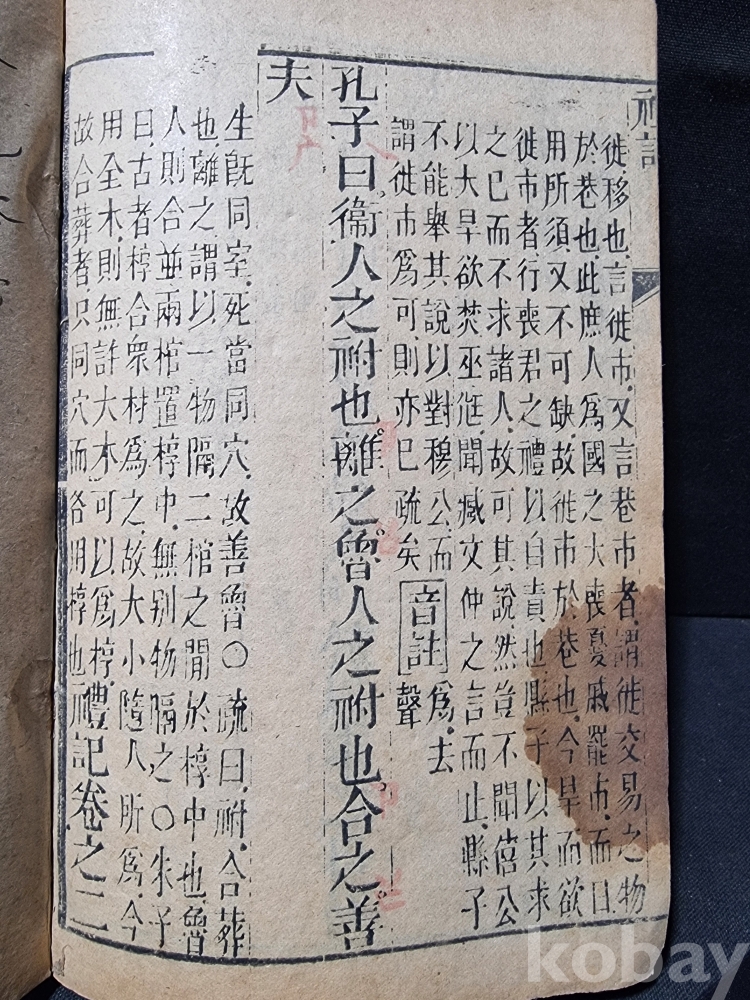 禮記
徙移也言徙市又言巷市者謂徙交易之物
於巷也此庶人爲國之大喪憂戚罷市而日
用所須又不可缺故徙市於巷也今旱而欲
徙市者行喪君之禮以自責也縣子以其求
之已而不求諸人故可其說然豈不聞僖公
以大旱欲焚巫尫聞臧文仲之言而止縣子
不能舉其說以對穆公而
謂徙市爲可則亦已疏矣音註爲去聲
孔子曰衞人之祔也離之魯人之祔也合之善
夫
生旣同室死當同穴故善魯○疏曰祔合葬
也離之謂以一物隔二棺之間於椁中也魯
人則合並兩棺置椁中無别物隔之○朱子
曰古者椁合衆材爲之故大小隨人所爲今
用全木則無許大木可以爲椁
故合葬者只同穴而各用椁也禮記卷之二
kobay